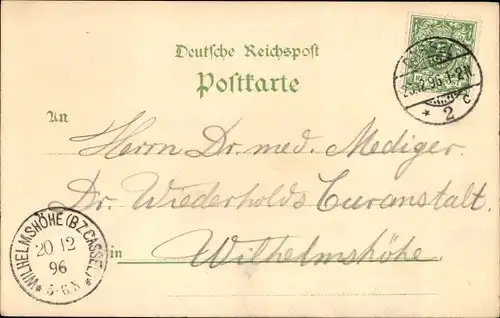 Deutsche Reichspost
Postkarte
An
Herrn Dr. med. Mediger.
Dr. Wiederholds Curanstalt.
in Wilhelmshöhe
96.1-2N
* 2 c
WILHELMSHÖHE (BZ CASSEL)
20 12
96
* 5-6N *